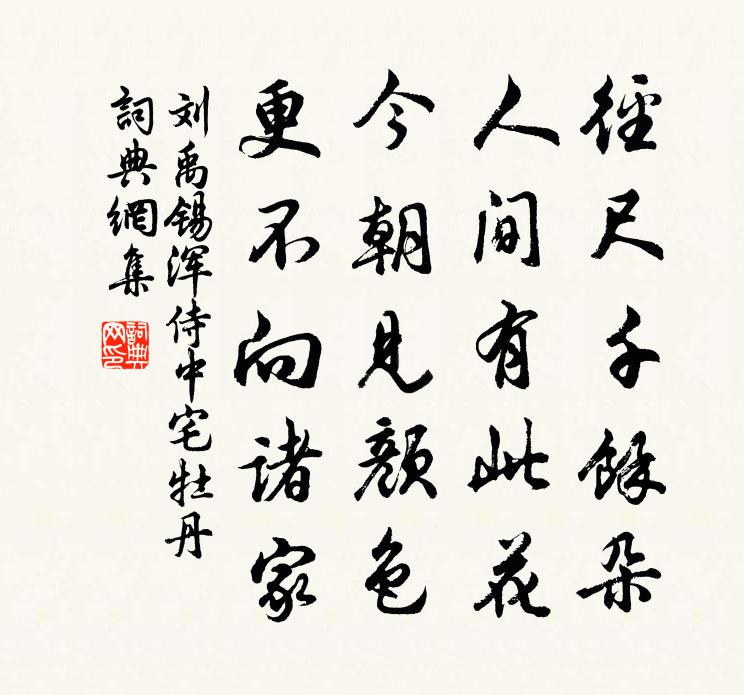 徑尺千餘朵
人间有此花
今朝見顏色
更不向诸家
刘禹锡浑侍中宅牡丹
詞典網集
詞典網印